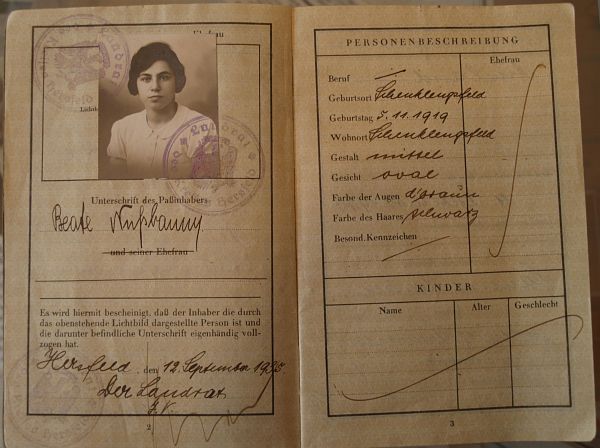 Ehefrau
Lichtbild
Unterschrift des Paßinhabers
Beate Nußbaum
und seiner Ehefrau
Es wird hiermit bescheinigt, daß der Inhaber die durch
das obenstehende Lichtbild dargestellte Person ist und
die darunter befindliche Unterschrift eigenhändig voll-
zogen hat.
Hersfeld, den 12. September 1935
Der Landrat
J.V.
2
PERSONENBESCHREIBUNG
Ehefrau
Beruf
Geburtsort Schenklengsfeld
Geburtstag 5.11.1919
Wohnort Schenklengsfeld
Gestalt mittel
Gesicht oval
Farbe der Augen d'braun
Farbe des Haares schwarz
Besond. Kennzeichen
KINDER
Name Alter Geschlecht
3